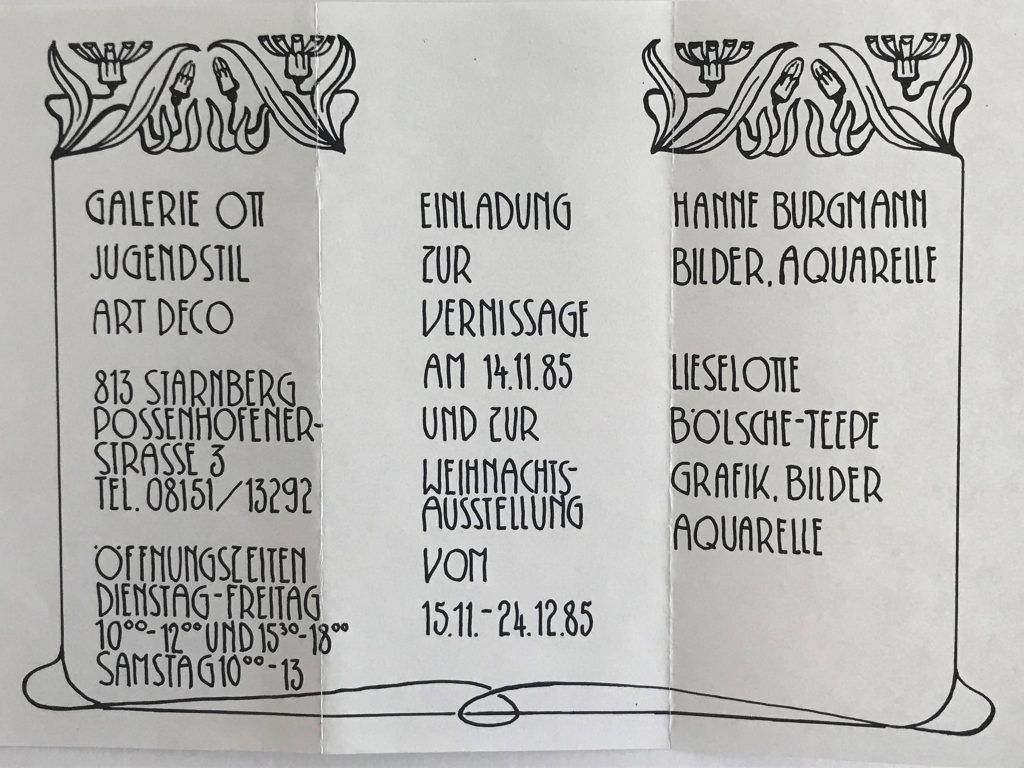 GALERIE OTT
JUGENDSTIL
ART DECO
813 STARNBERG
POSSENHOFENER-
STRASSE 3
TEL. 08151/13292
ÖFFNUNGSZEITEN
DIENSTAG-FREITAG
10⁰⁰-12⁰⁰ UND 15³⁰-18⁰⁰
SAMSTAG 10⁰⁰-13
EINLADUNG
ZUR
VERNISSAGE
AM 14.11.85
UND ZUR
WEIHNACHTS-
AUSSTELLUNG
VOM
15.11.-24.12.85
HANNE BURGMANN
BILDER, AQUARELLE
LIESELOTTE
BÖLSCHE-TEEPE
GRAFIK, BILDER
AQUARELLE